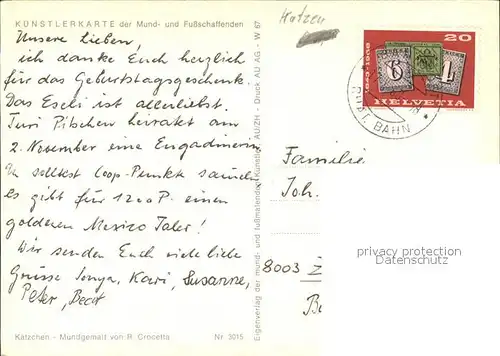 KÜNSTLERKARTE der Mund- und Fußschaffenden
Unsere Lieben,
ich danke Euch herzlich
für das Geburtstagsgeschenk.
Das Eseli ist allerliebst.
Turi Pitschen heiratet am
2. November eine Engadinerin
Du solltest Coop-Punkte sammeln
es gibt für 1200 P. einen
goldenen Mexico Taler!
Wir senden Euch viele liebe
Grüsse Sonya, Kari, Susanne,
Peter, Beat
Kätzchen - Mundgemalt von R. Crocetta Nr 3015
Eigenverlag der mund- und fußmalenden Künstler AU/ZH - Druck AU AG - W 67
Katzen
20
1843-1968
HELVETIA
BAHN
Familie
Joh.
8003 Z
privacy protection
Datenschutz